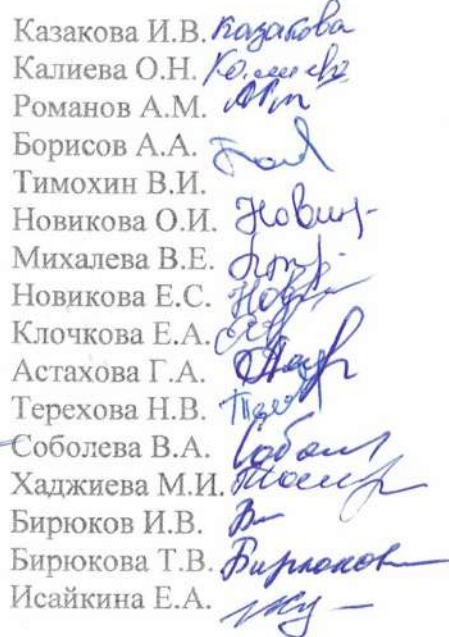 Казакова И.В. Казакова
Калиева О.Н. Калиева
Романов А.М.
Борисов А.А.
Тимохин В.И.
Новикова О.И. Новик
Михалева В.Е.
Новикова Е.С. Нов
Клочкова Е.А.
Астахова Г.А.
Терехова Н.В.
Соболева В.А. Собол
Хаджиева М.И.
Бирюков И.В.
Бирюкова Т.В. Бирюков
Исайкина Е.А.